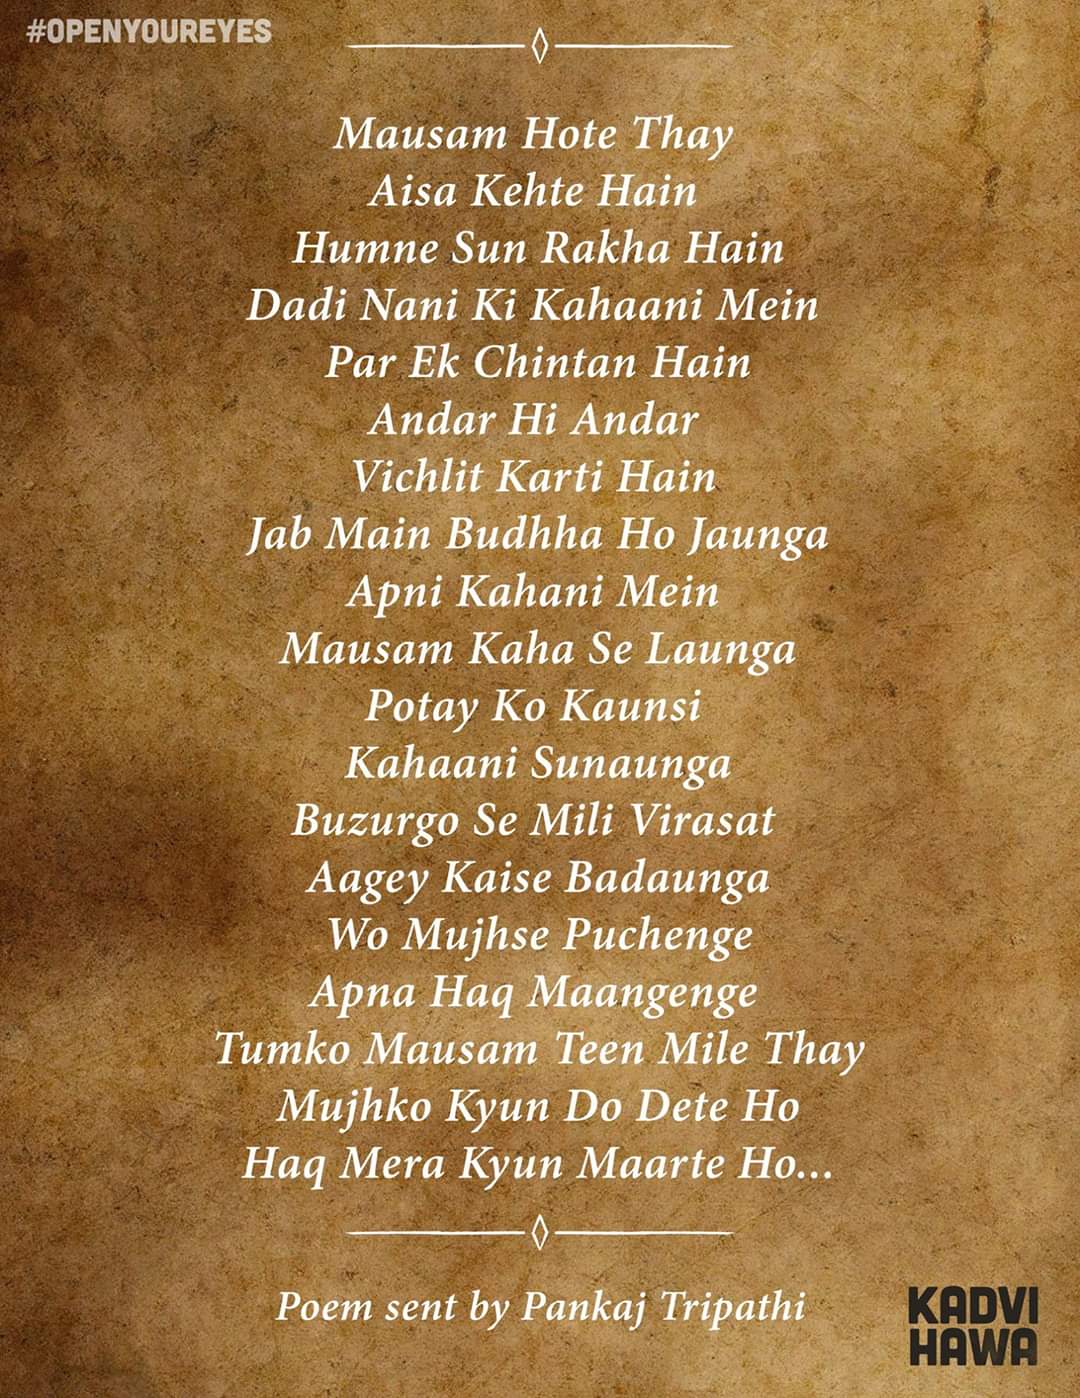 #OPENYOUREYES
Mausam Hote Thay
Aisa Kehte Hain
Humne Sun Rakha Hain
Dadi Nani Ki Kahaani Mein
Par Ek Chintan Hain
Andar Hi Andar
Vichlit Karti Hain
Jab Main Budhha Ho Jaunga
Apni Kahani Mein
Mausam Kaha Se Launga
Potay Ko Kaunsi
Kahaani Sunaunga
Buzurgo Se Mili Virasat
Aagey Kaise Badaunga
Wo Mujhse Puchenge
Apna Haq Maangenge
Tumko Mausam Teen Mile Thay
Mujhko Kyun Do Dete Ho
Haq Mera Kyun Maarte Ho...
Poem sent by Pankaj Tripathi
KADVI
HAWA